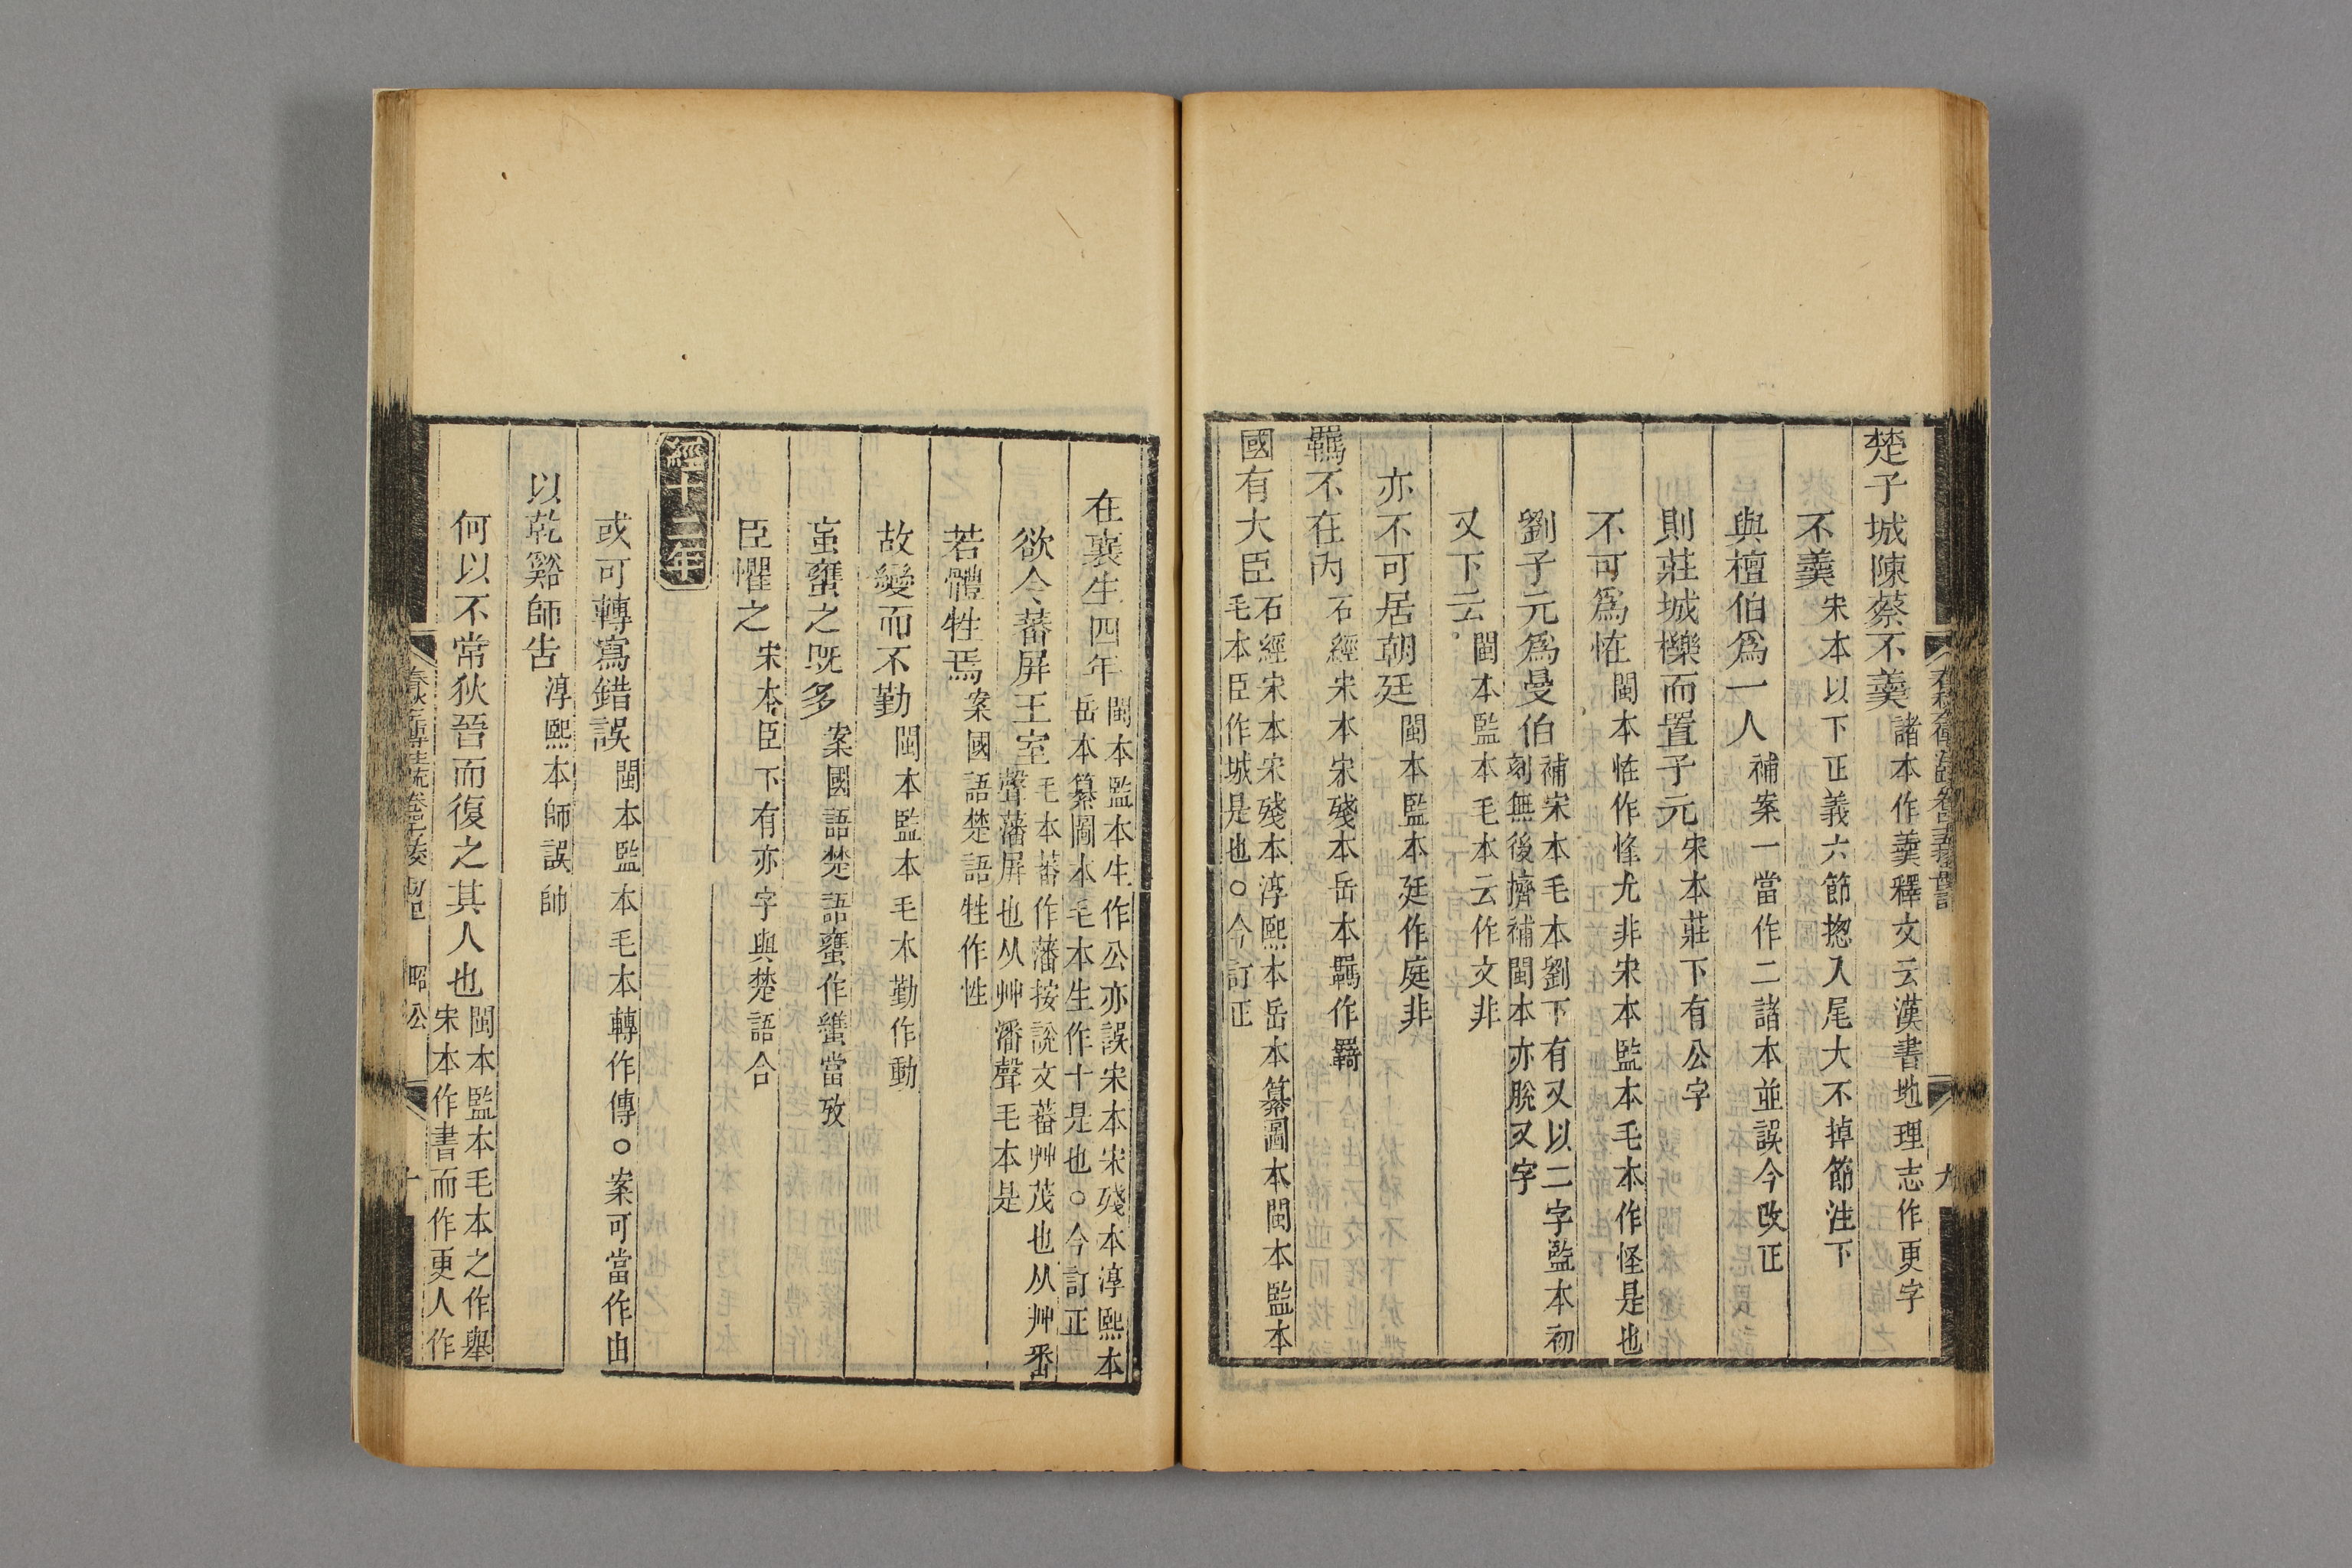 楚子城陳蔡不羹 諸本作羹釋文云漢書地理志作更字
不羹 宋本以下正義六節揔入尾大不掉節注下
與檀伯爲一人 補案一當作二諸本並誤今改正
則莊城櫟而置子元 宋本莊下有公字
不可爲恠 閩本恠作恠尤非宋本監本毛本作怪是也
劉子元爲曼伯 補宋本毛本劉下有又以二字監本初
刻無後擠補閩本亦脫又字
又下云 閩本監本毛本云作文非
亦不可居朝廷 閩本監本廷作庭非
羈不在內 石經宋本宋殘本岳本羈作羇
國有大臣 石經宋本宋殘本淳熙本岳本纂圖本閩本監本
毛本臣作城是也○今訂正
九
在襄生四年 閩本監本生作公亦誤宋本宋殘本淳熙本
岳本纂圖本毛本生作十是也○今訂正
欲令蕃屏王室 毛本蕃作藩按說文蕃艸茂也从艸番
聲藩屏也从艸潘聲毛本是
若體牲焉 案國語楚語牲作性
故變而不勤 閩本監本毛本勤作動
䖟䘆之既多 案國語楚語䘆作䘆當攷
臣懼之 宋本臣下有亦字與楚語合
經十二年
或可轉寫錯誤 閩本監本毛本轉作傳○案可當作由
以乾谿師告 淳熙本師誤帥
何以不常狄晉而復之其人也 閩本監本毛本之作舉
宋本作書而作更人作
昭公
十